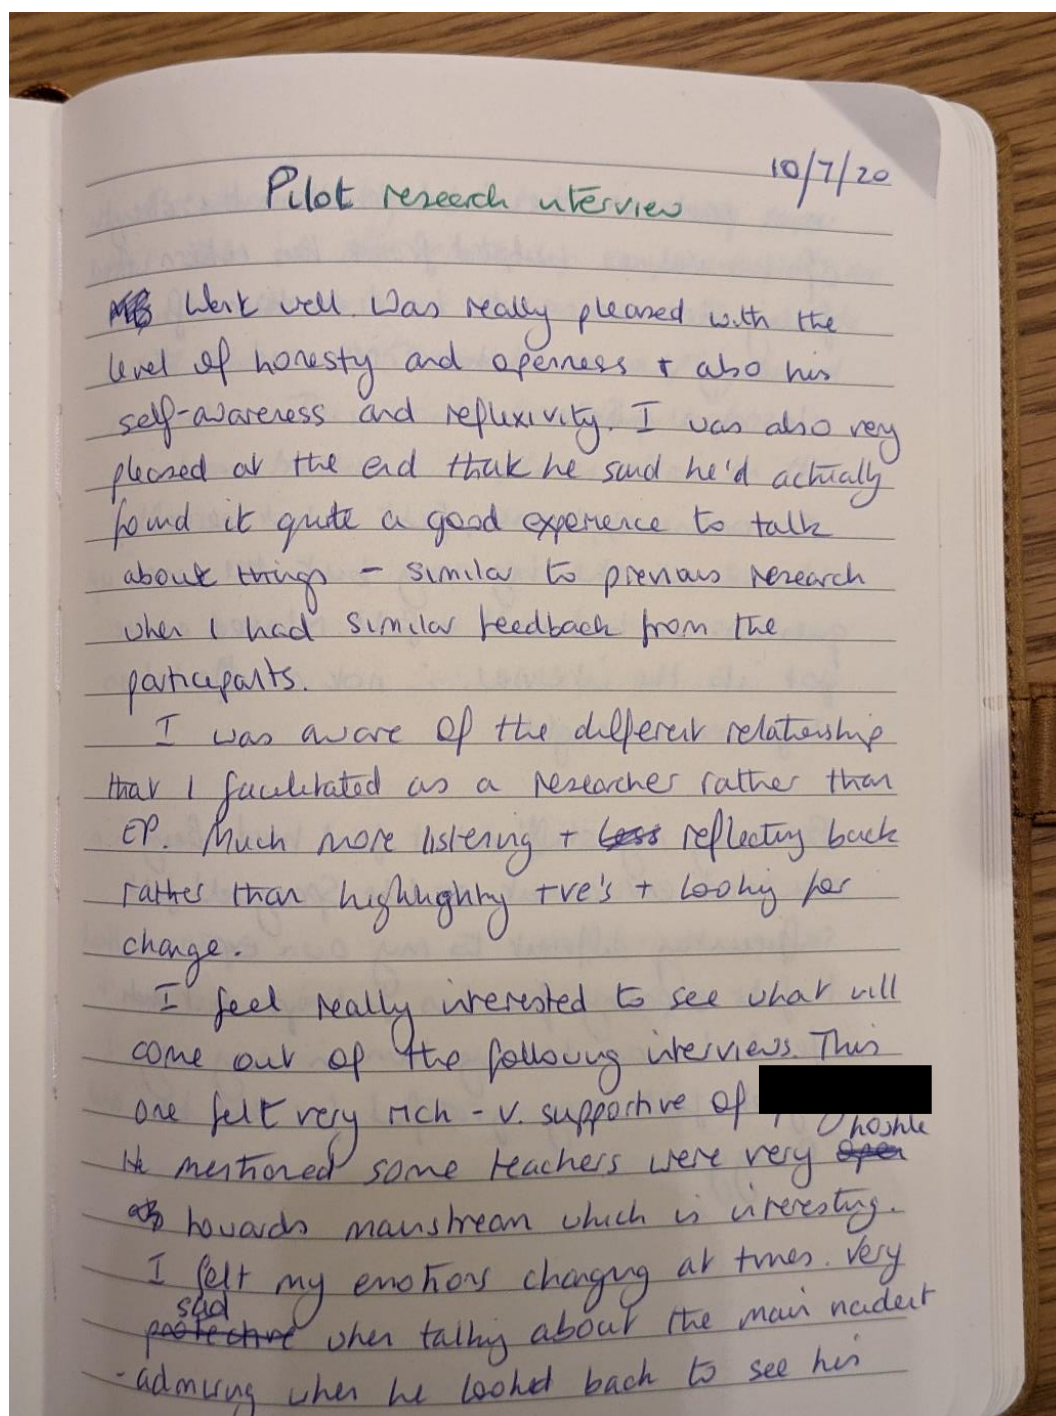 10/7/20
Pilot research interview
Went well. Was really pleased with the
level of honesty and openness + also his
self-awareness and reflexivity. I was also very
pleased at the end that he said he'd actually
found it quite a good experience to talk
about things - similar to previous research
when I had similar feedback from the
participants.
I was aware of the different relationship
that I facilitated as a researcher rather than
EP. Much more listening + less reflecting back
rather than highlighting +ve's + looking for
change.
I feel really interested to see what will
come out of the following interviews. This
one felt very rich - v. supportive of
hostile
He mentioned some teachers were very open
towards mainstream which is interesting.
I felt my emotions changing at times. Very
sad
protective when talking about the main incident
- admiring when he looked back to see his